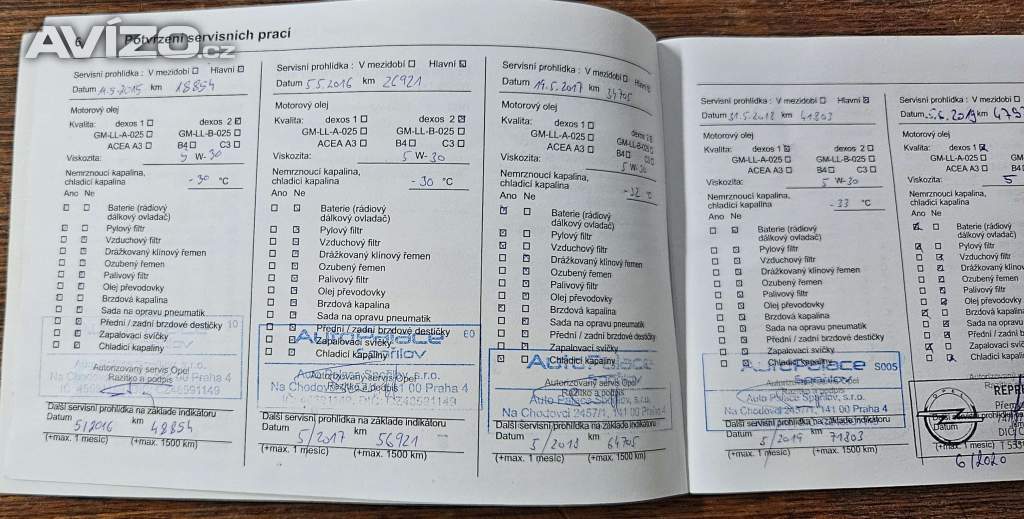 AVÍZO.cz
6 Potvrzení servisních prací
Servisní prohlídka : V mezidobí Hlavní
Datum 14.9.2015 km 18854
Motorový olej
Kvalita: dexos 1 dexos 2
GM-LL-A-025 GM-LL-B-025
ACEA A3 B4 C3
Viskozita: 5 W-30
Nemrznoucí kapalina,
chladicí kapalina -30 °C
Ano Ne
Baterie (rádiový
dálkový ovladač)
Pylový filtr
Vzduchový filtr
Drážkovaný klínový řemen
Ozubený řemen
Palivový filtr
Olej převodovky
Brzdová kapalina
Sada na opravu pneumatik
Přední / zadní brzdové destičky
Zapalovací svíčky
Chladicí kapaliny
10
Autorizovaný servis Opel
Razítko a podpis
Na Chodovci 00 Praha 4
Další servisní prohlídka na základě indikátoru
Datum 5/2016 km 48854
(+max. 1 měsíc) (+max. 1500 km)
Servisní prohlídka : V mezidobí Hlavní
Datum 5.5.2016 km 26921
Motorový olej
Kvalita: dexos 1 dexos 2
GM-LL-A-025 GM-LL-B-025
ACEA A3 B4 C3
Viskozita: 5 W-30
Nemrznoucí kapalina,
chladicí kapalina -30 °C
Ano Ne
Baterie (rádiový
dálkový ovladač)
Pylový filtr
Vzduchový filtr
Drážkovaný klínový řemen
Ozubený řemen
Palivový filtr
Olej převodovky
Brzdová kapalina
Sada na opravu pneumatik
Přední / zadní brzdové destičky
Zapalovací svíčky
Chladicí kapaliny
AutoPalace E0
Spořilov
Autorizovaný servis Opel
Spořilov, s.r.o.
Razítko a podpis
Na Chodovci 141 00 Praha 4
Další servisní prohlídka na základě indikátoru
Datum 5/2017 km 56921
(+max. 1 měsíc) (+max. 1500 km)
Servisní prohlídka : V mezidobí Hlavní
Datum 14.5.2017 km 34705
Motorový olej
Kvalita: dexos 1 dexos 2
GM-LL-A-025 GM-LL-B-025
ACEA A3 B4 C3
Viskozita: 5 W-30
Nemrznoucí kapalina,
chladicí kapalina -32 °C
Ano Ne
Baterie (rádiový
dálkový ovladač)
Pylový filtr
Vzduchový filtr
Drážkovaný klínový řemen
Ozubený řemen
Palivový filtr
Olej převodovky
Brzdová kapalina
Sada na opravu pneumatik
Přední / zadní brzdové destičky
Zapalovací svíčky
Chladicí kapaliny
AutoPalace
Autorizovaný servis Opel
Razítko a podpis
Auto Palace Spořilov, s.r.o.
Na Chodovci 2457/1, 141 00 Praha 4
Další servisní prohlídka na základě indikátoru
Datum 5/2018 km 64705
(+max. 1 měsíc) (+max. 1500 km)
Servisní prohlídka : V mezidobí Hlavní
Datum 31.5.2018 km 41803
Motorový olej
Kvalita: dexos 1 dexos 2
GM-LL-A-025 GM-LL-B-025
ACEA A3 B4 C3
Viskozita: 5 W-30
Nemrznoucí kapalina,
chladicí kapalina -33 °C
Ano Ne
Baterie (rádiový
dálkový ovladač)
Pylový filtr
Vzduchový filtr
Drážkovaný klínový řemen
Ozubený řemen
Palivový filtr
Olej převodovky
Brzdová kapalina
Sada na opravu pneumatik
Přední / zadní brzdové destičky
Zapalovací svíčky
Chladicí kapaliny
AutoPalace S005
Spořilov
Autorizovaný servis Opel
Razítko a podpis
Auto Palace Spořilov, s.r.o.
Na Chodovci 2457/1, 141 00 Praha 4
Další servisní prohlídka na základě indikátoru
Datum 5/2019 km 71803
(+max. 1 měsíc) (+max. 1500 km)
Servisní prohlídka : V mezidobí
Datum 5.6.2019 km
Motorový olej
Kvalita: dexos 1
GM-LL-A-025
ACEA A3 B4
Viskozita: 5
Nemrznoucí kapalina,
chladicí kapalina
Ano Ne
Baterie (rádiový
dálkový ovladač)
Pylový filtr
Vzduchový filtr
Drážkovaný klínový
Ozubený řemen
Palivový filtr
Olej převodovky
Brzdová kapalina
Sada na opravu
Přední / zadní brzdové
Zapalovací svíčky
Chladicí kapaliny
OPEL
Datum
6/2020
(+max. 1 měsíc)